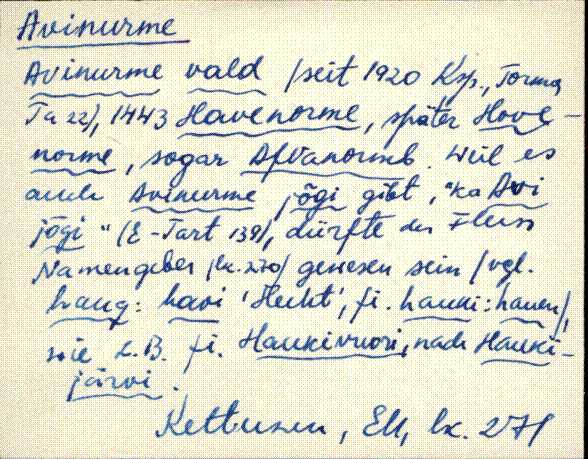 Avinurme
Avinurme vald (seit 1920 Ksp., Torma
Ta 22), 1443 Havenorme, später Hove-
norme, sogar Afvanormb. Weil es
auch Avinurme jõgi gibt, "ka Avi
jõgi" (E-Tart 139), dürfte der Fluss
Namengeber (lk. 270) gewesen sein (vgl.
haug: havi 'Hecht', fi. hauki: hauen),
wie z.B. fi. Haukivuori, nach Hauki-
järvi.
Kettunen, EM, lk. 271